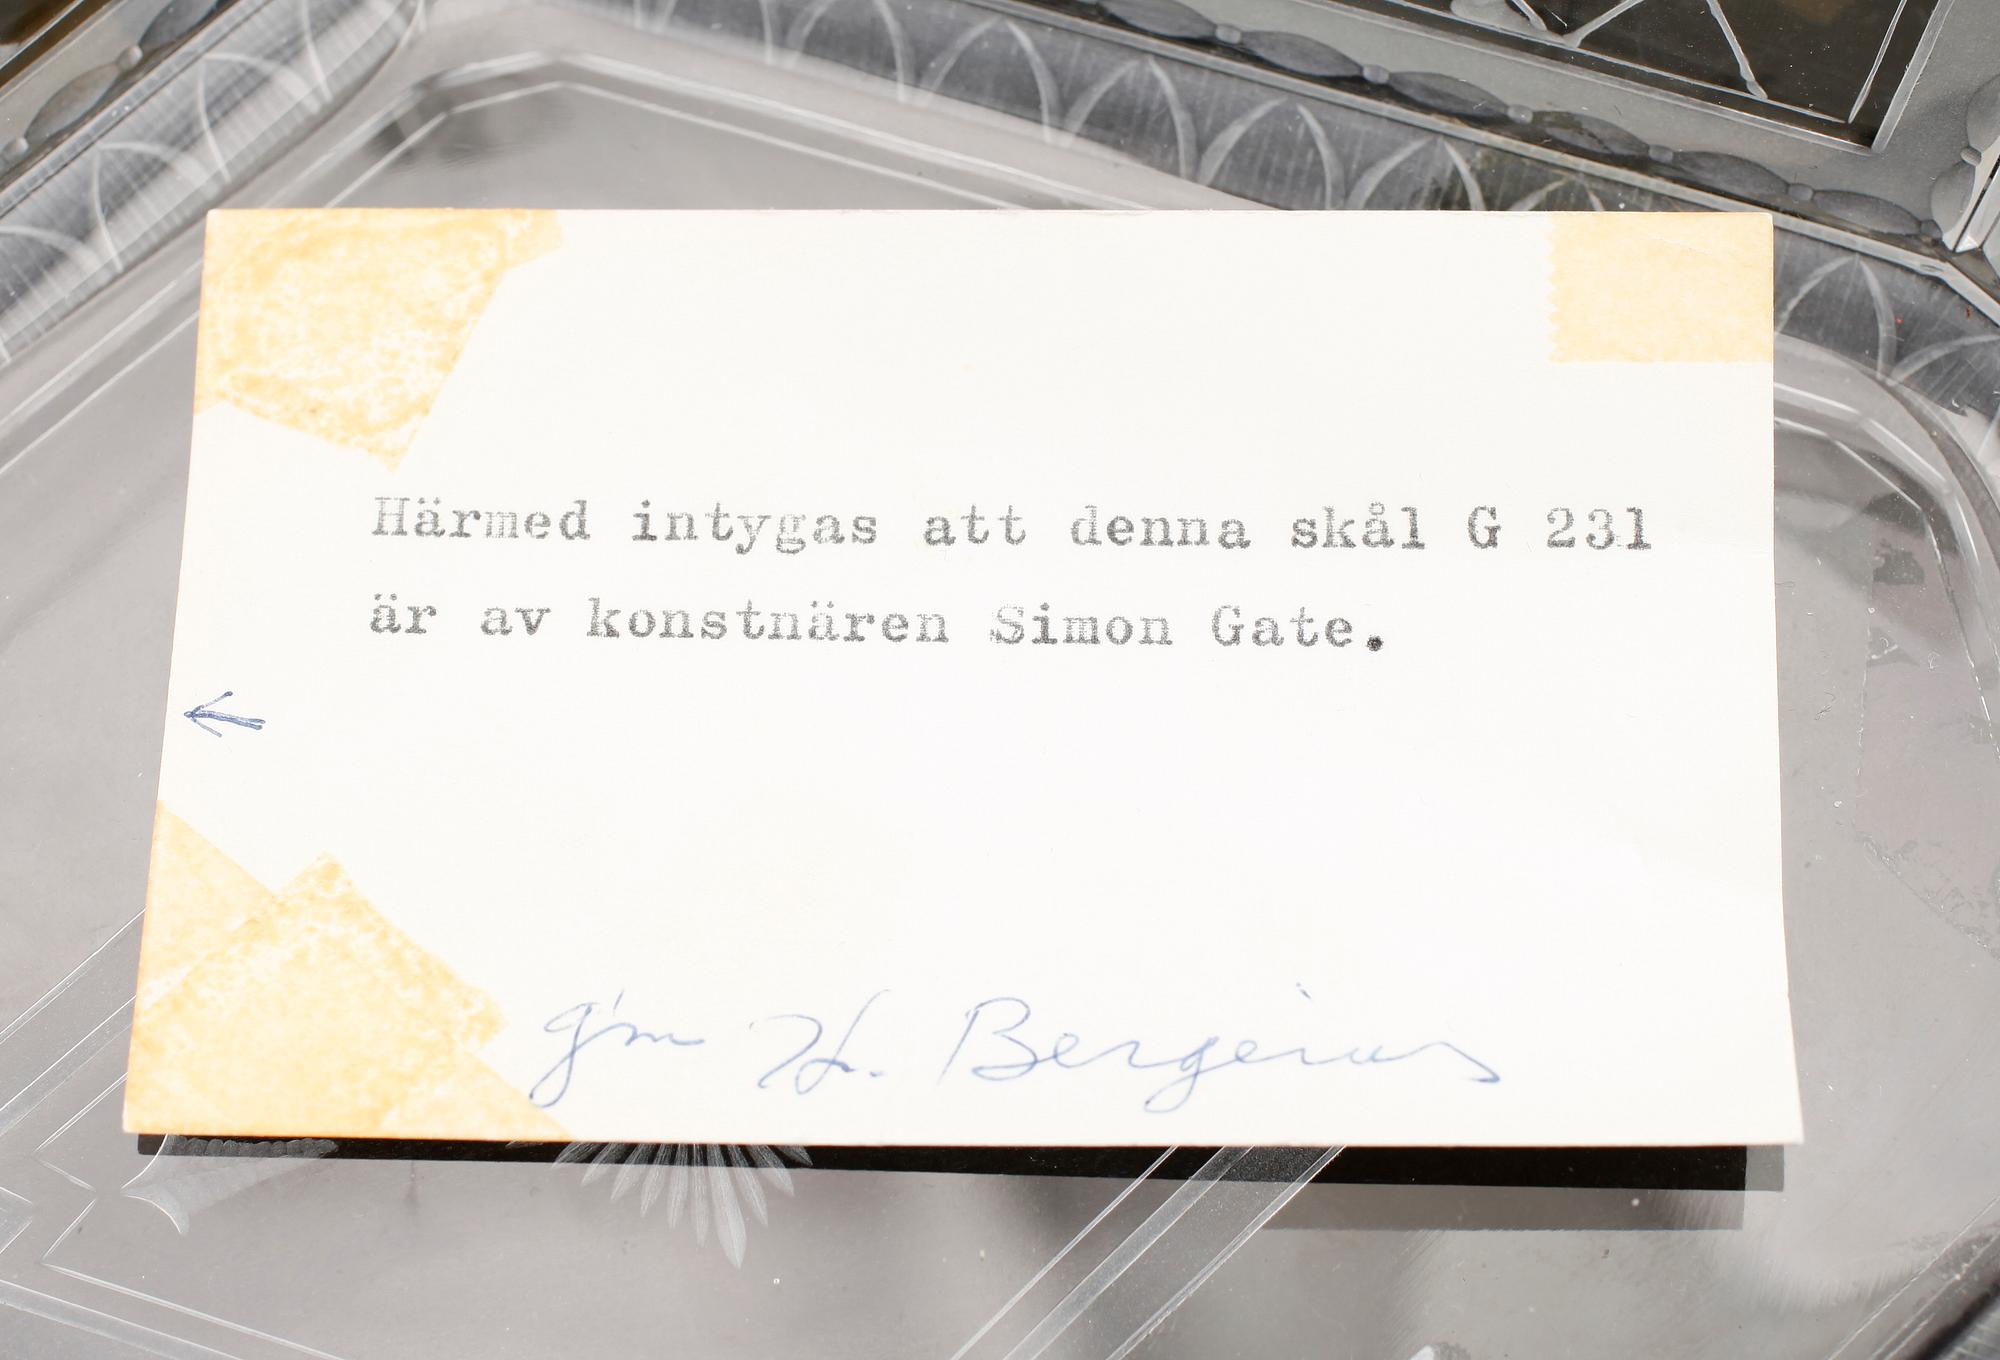 Härmed intygas att denna skål G 231
är av konstnären Simon Gate.
gm H. Bergerius